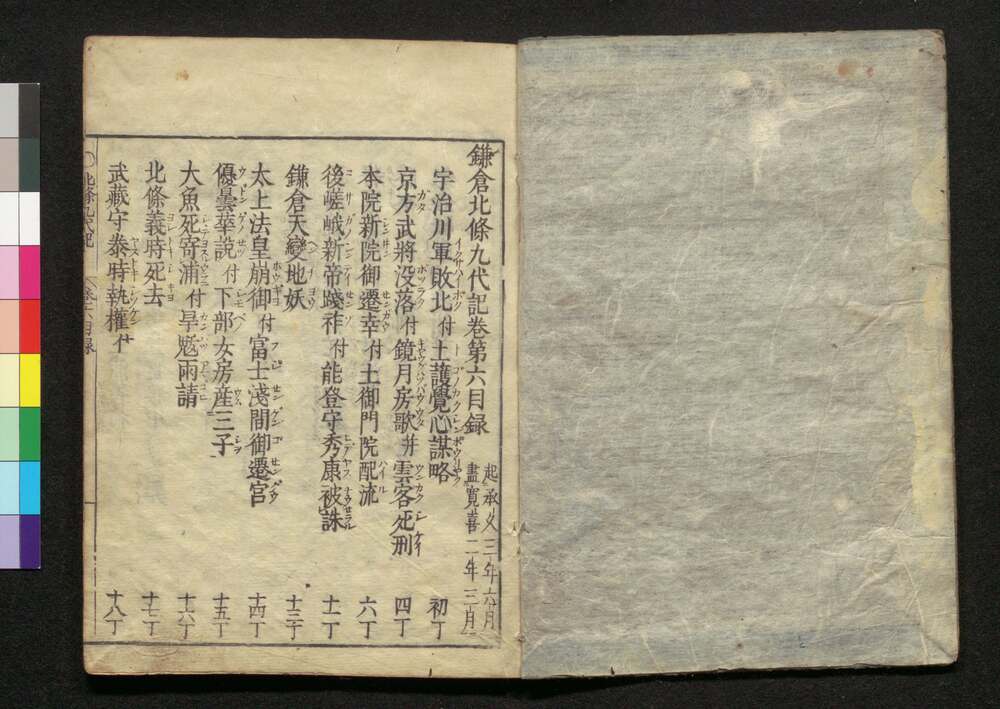 鎌倉北條九代記卷第六目録
起承久三年六月
盡寛喜二年三月
宇治川軍敗北 付 土護覺心謀略 初丁
京方武將没落 付 鏡月房歌 并 雲客死刑 四丁
本院新院御遷幸 付 土御門院配流 六丁
後嵯峨新帝踐祚 付 能登守秀康被誅 十一丁
鎌倉天變地妖 十三丁
太上法皇崩御 付 富士淺間御遷宮 十四丁
優曇華説 付 下部女房産三子 十五丁
大魚死寄浦 付 旱魃雨請 十六丁
北條義時死去 十七丁
武藏守泰時執權 付 十八丁
北條九代記 卷六目録